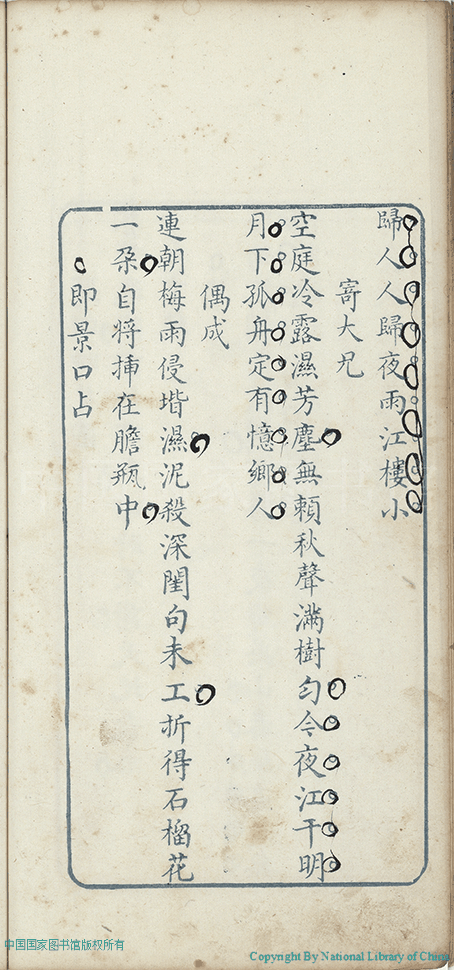 歸人人歸夜雨江樓小
寄大兄
空庭冷露濕芳塵無賴秋聲滿樹勻今夜江干明
月下孤舟定有憶鄉人
偶成
連朝梅雨侵堦濕泥殺深閨句未工折得石榴花
一朶自將揷在膽瓶中
即景口占
中国国家图书馆版权所有
Copyright By National Library of China